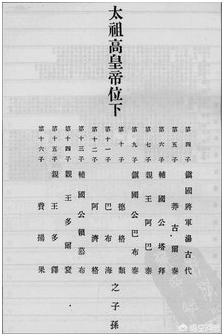 太祖高皇帝位下
第四子 鎮國將軍湯古代
第五子 莽古爾泰
第六子 輔國公塔拜
第七子 親王阿巴泰
第九子 鎮國公巴布泰
第十子 德格類
第十一子 巴布海
第十二子 阿濟格
第十三子 輔國公賴慕布
第十四子 親王多爾袞
第十五子 親王多鐸
第十六子 費揚果
之子孫